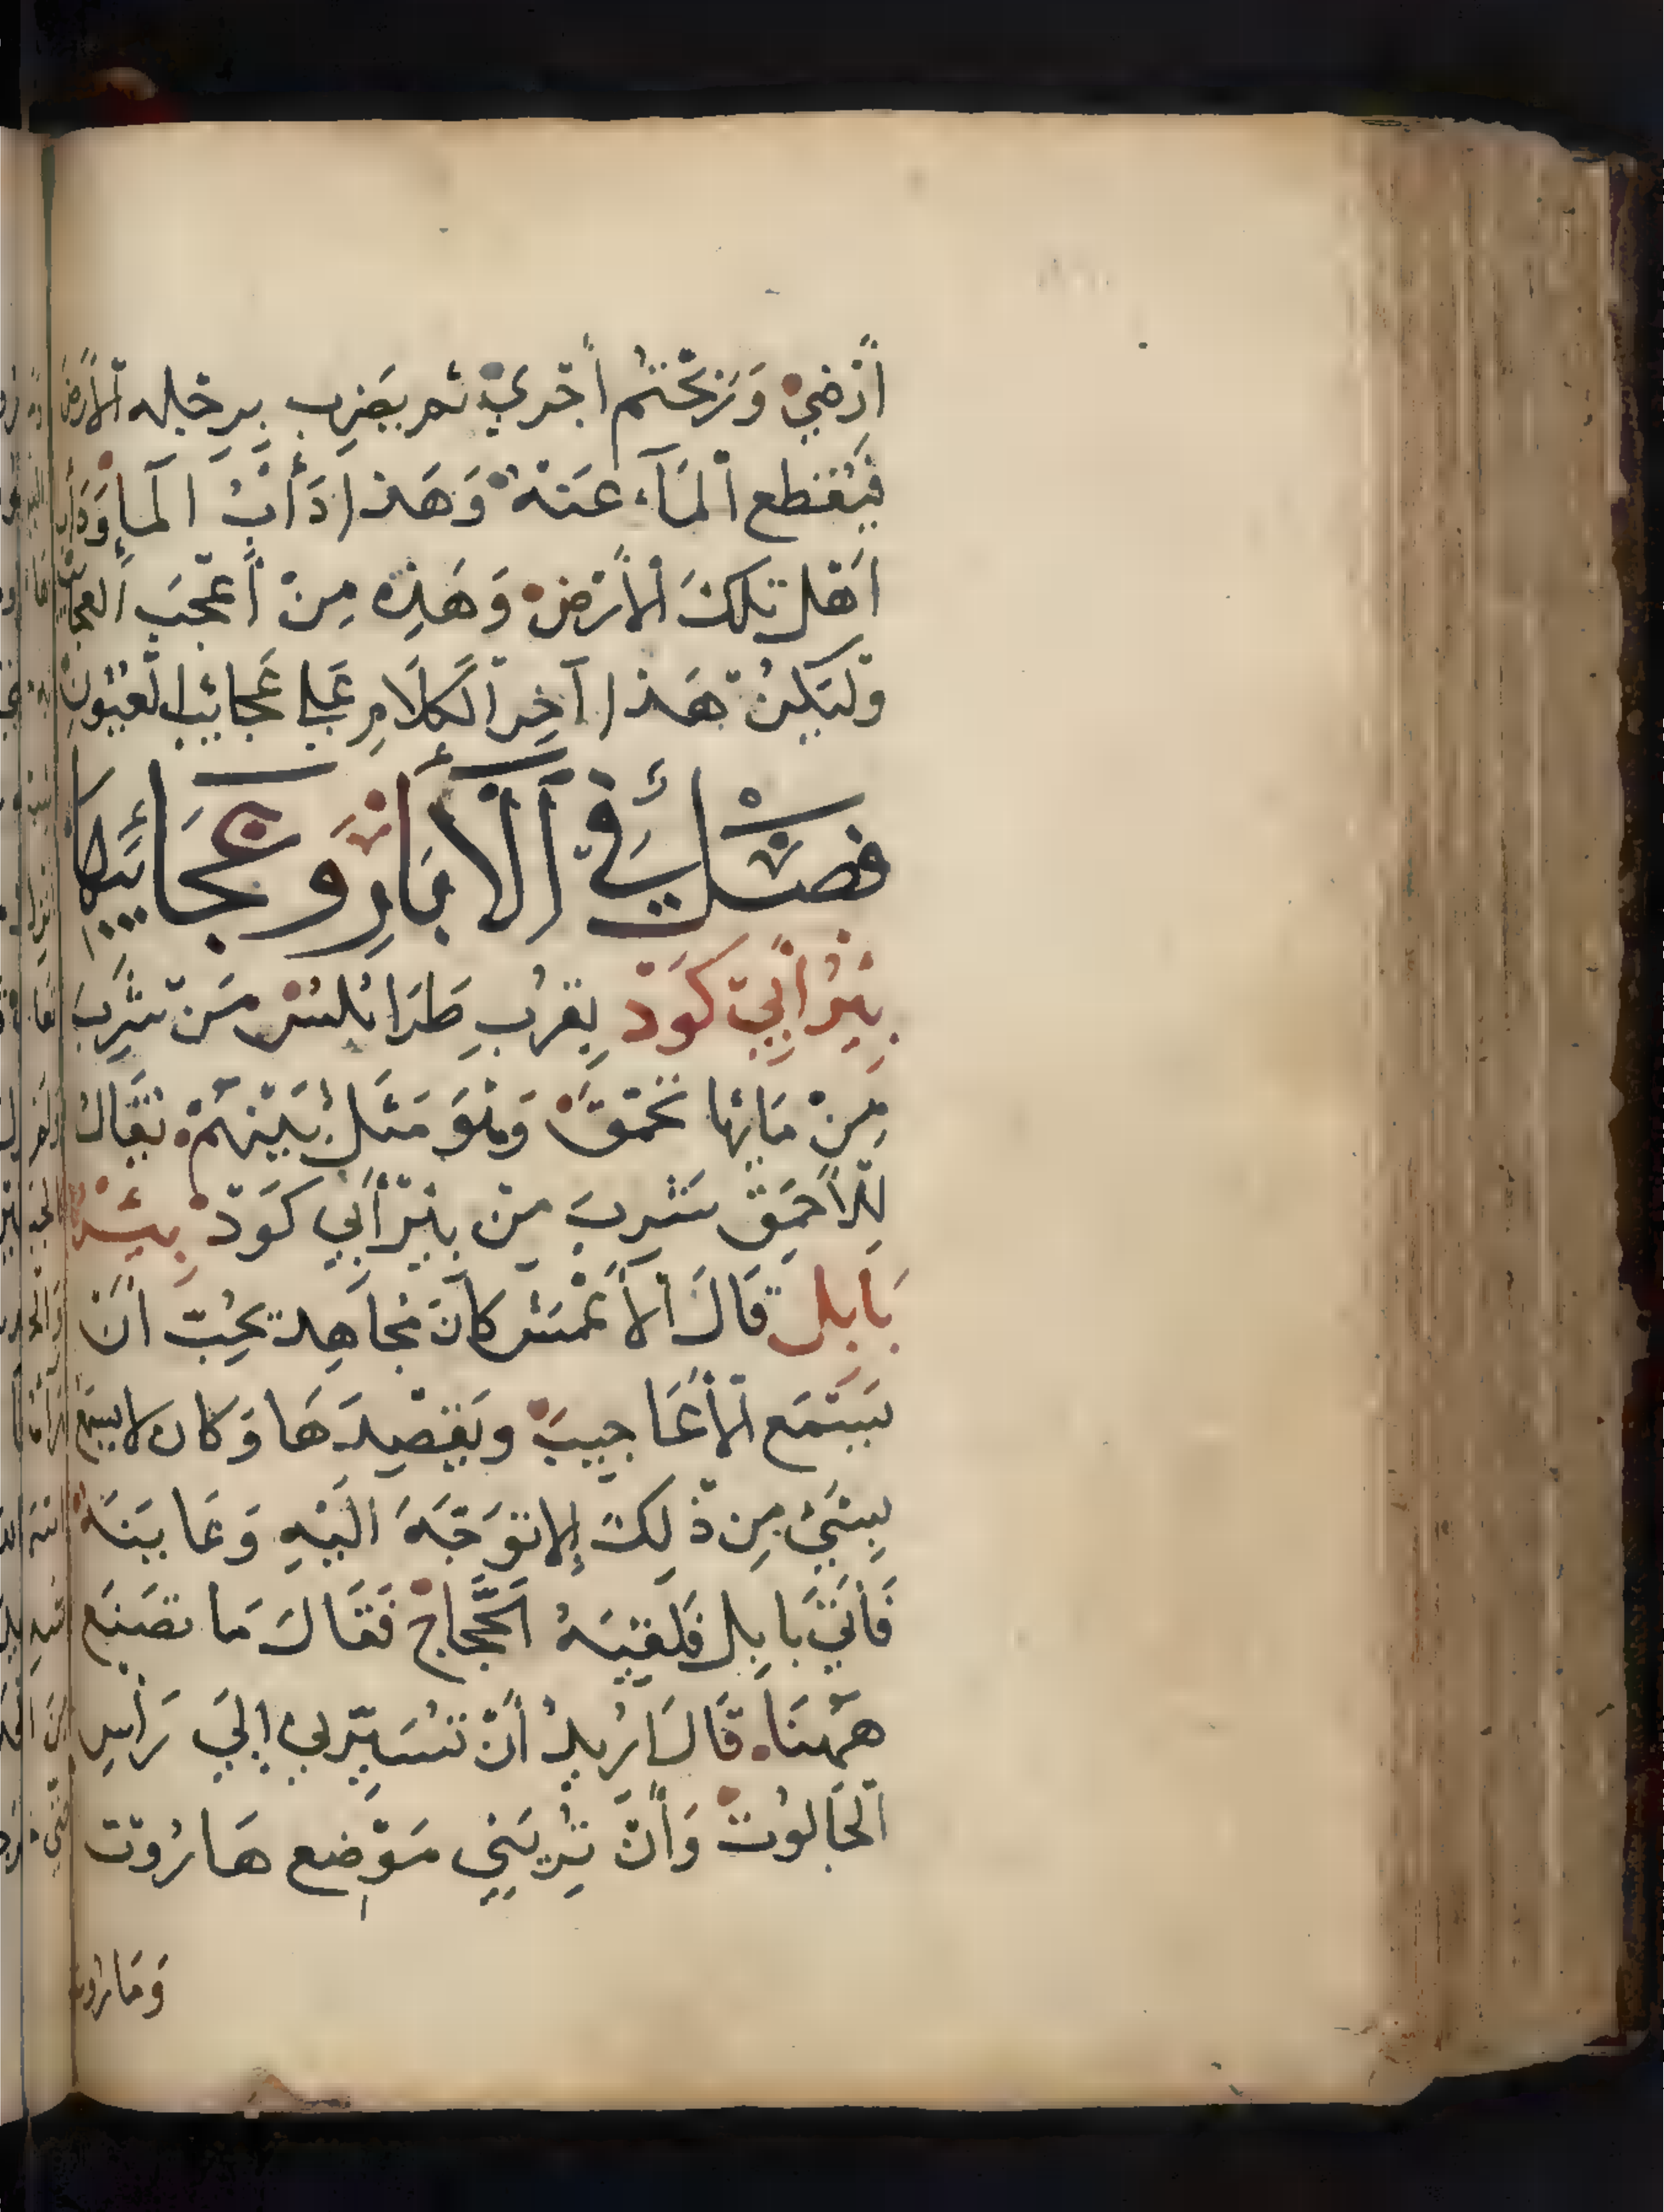 أَرْضِيْ وَرَبِحْتُم أَجْرِيْ ثم يَضرِب بِرِجْلِه اْلأَرْضَ
فَيُنْقَطع الْمَآء عَنْهُ وَهَذا دَأْبُ المَاءِ وَدَأْبُ
أَهْل تلكَ الْأَرْضِ وَهَذِه مِنْ أَعْجَبِ العجايب
وَلْيَكُنْ هَذا آخِر الْكَلَامِ عَلى عَجَائب الْعُيُونِ
فَصْلٌ في اْلآبَارِ وَعَجَائِبِهَا
بِئْرُ أَبِيْ كَوَدْ بِقُرْبِ طَرَابُلُسْ مَنْ شَرِبَ
مِنْ مَائِها تَحَمَّقَ وَهُوَ مَثَل بَيْنَهُمْ يُقَال
لِلْأَحْمَقِ شَرِبَ مِنْ بِئْر أَبِي كَوَدْ بِئْرُ
بَابِل قَالَ الْأَعْمَش كَانَ مُجَاهِد يُحِبّ أَنْ
يَسْتَمَع الْأَعَاجِيبَ وَيَقْصِدَهَا وَكَان لا يسمع
بِشَيْ مِن ذَلِكَ إلا تَوَجَّهَ الَيْهِ وَعَايَنَهُ
فَأَتَى بَابِل فَلَقِيَهُ الْحَجَّاج فَقَالَ مَا تَصْنَع
هَهُنَا قَالَ أرُيدُ أَنْ تُسَيِّرَني إلَى رَأْسِ
الْجَالُوت وَأَنْ تُرِيَنِي مَوْضِع هَارُوْت
وَمَارُوت